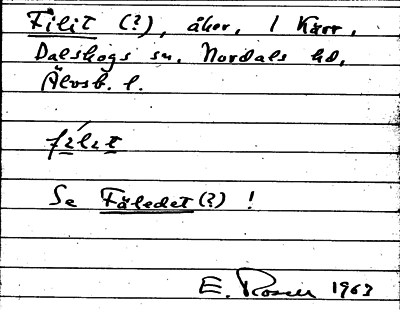 Filit (?), åker, 1 Kärr,
Dalskogs sn, Nordals hd,
Älvsb. l.
fílet
Se Fäledet (?) !
E. Rosell 1963